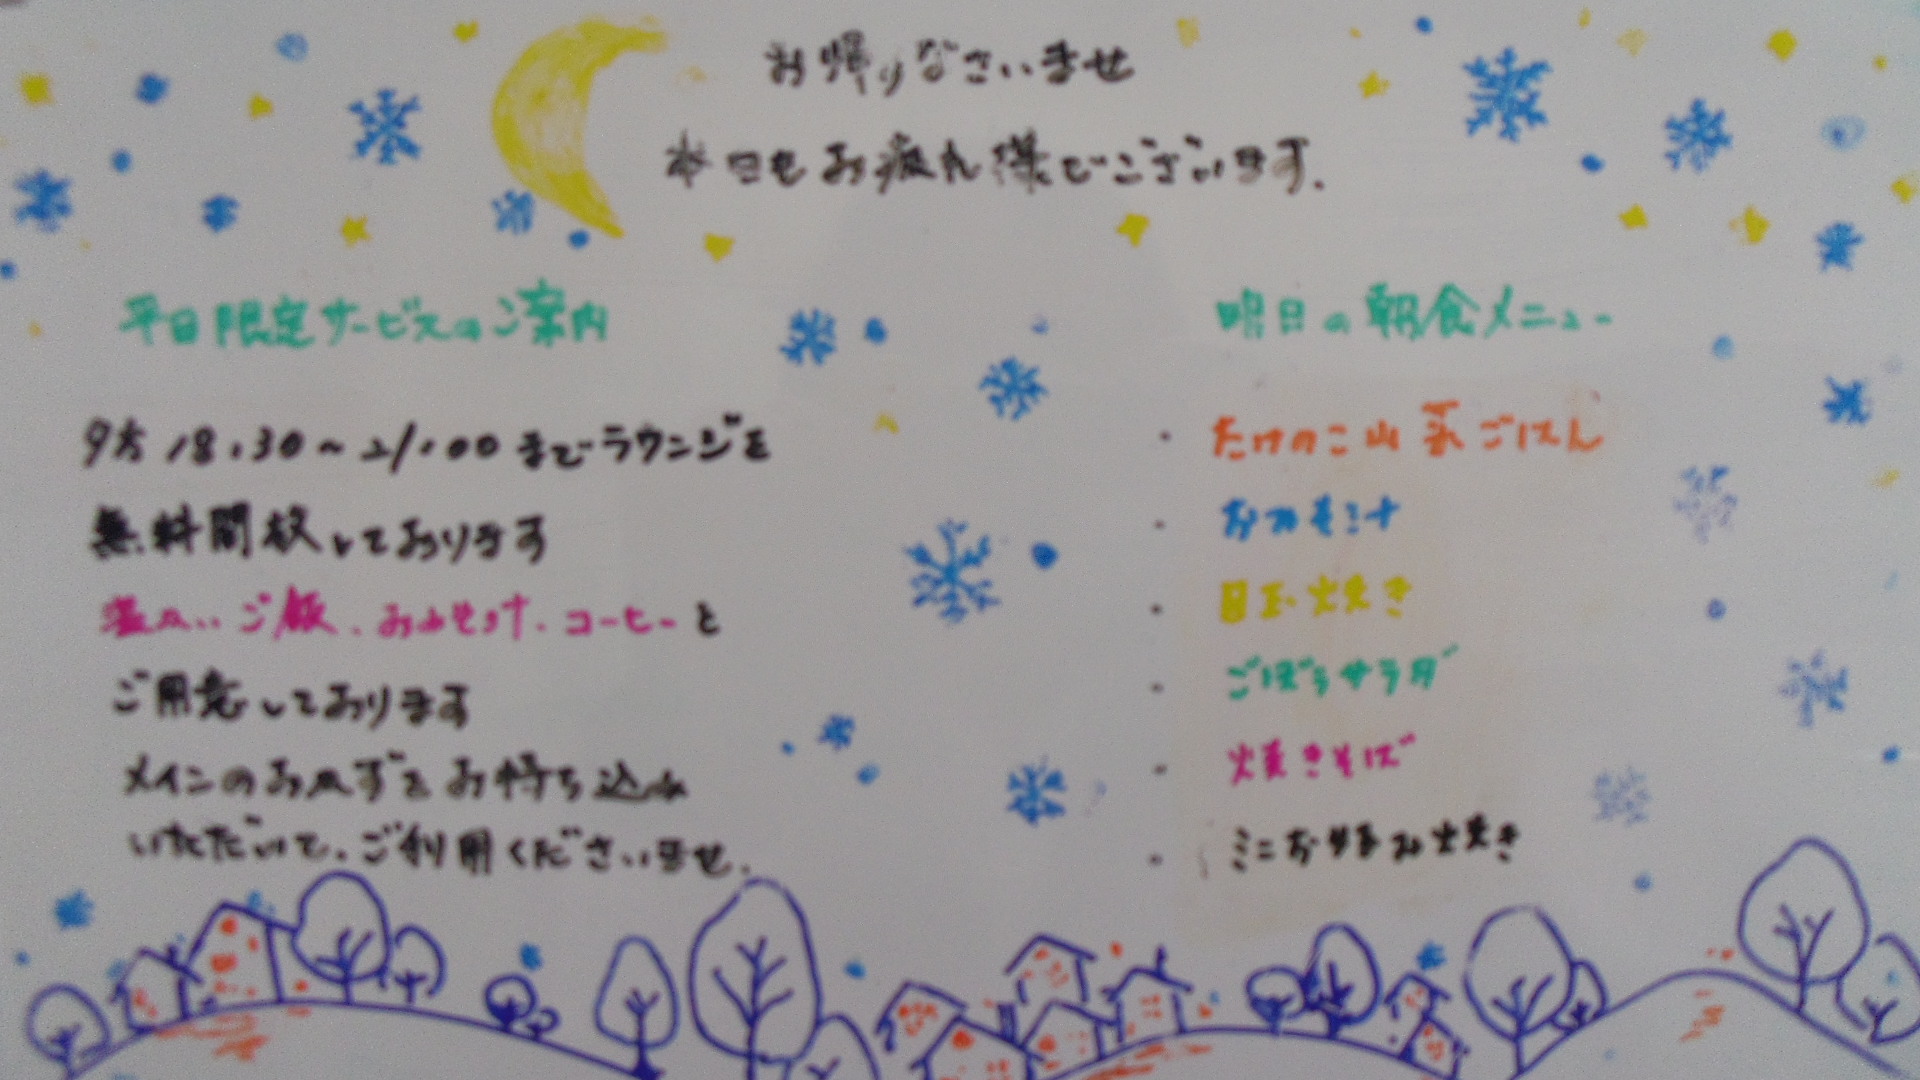 お帰りなさいませ
本日もお疲れ様でございます.
平日限定サービスのご案内
夕方 18:30～21:00 までラウンジを
無料開放しております
温かいご飯、おみそ汁、コーヒーと
ご用意しております
メインのおかずをお持ち込み
いただいて、ご利用くださいませ.
明日の朝食メニュー
・たけのこ山菜ごはん
・おみそ汁
・目玉焼き
・ごぼうサラダ
・焼きそば
・ミニお好み焼き